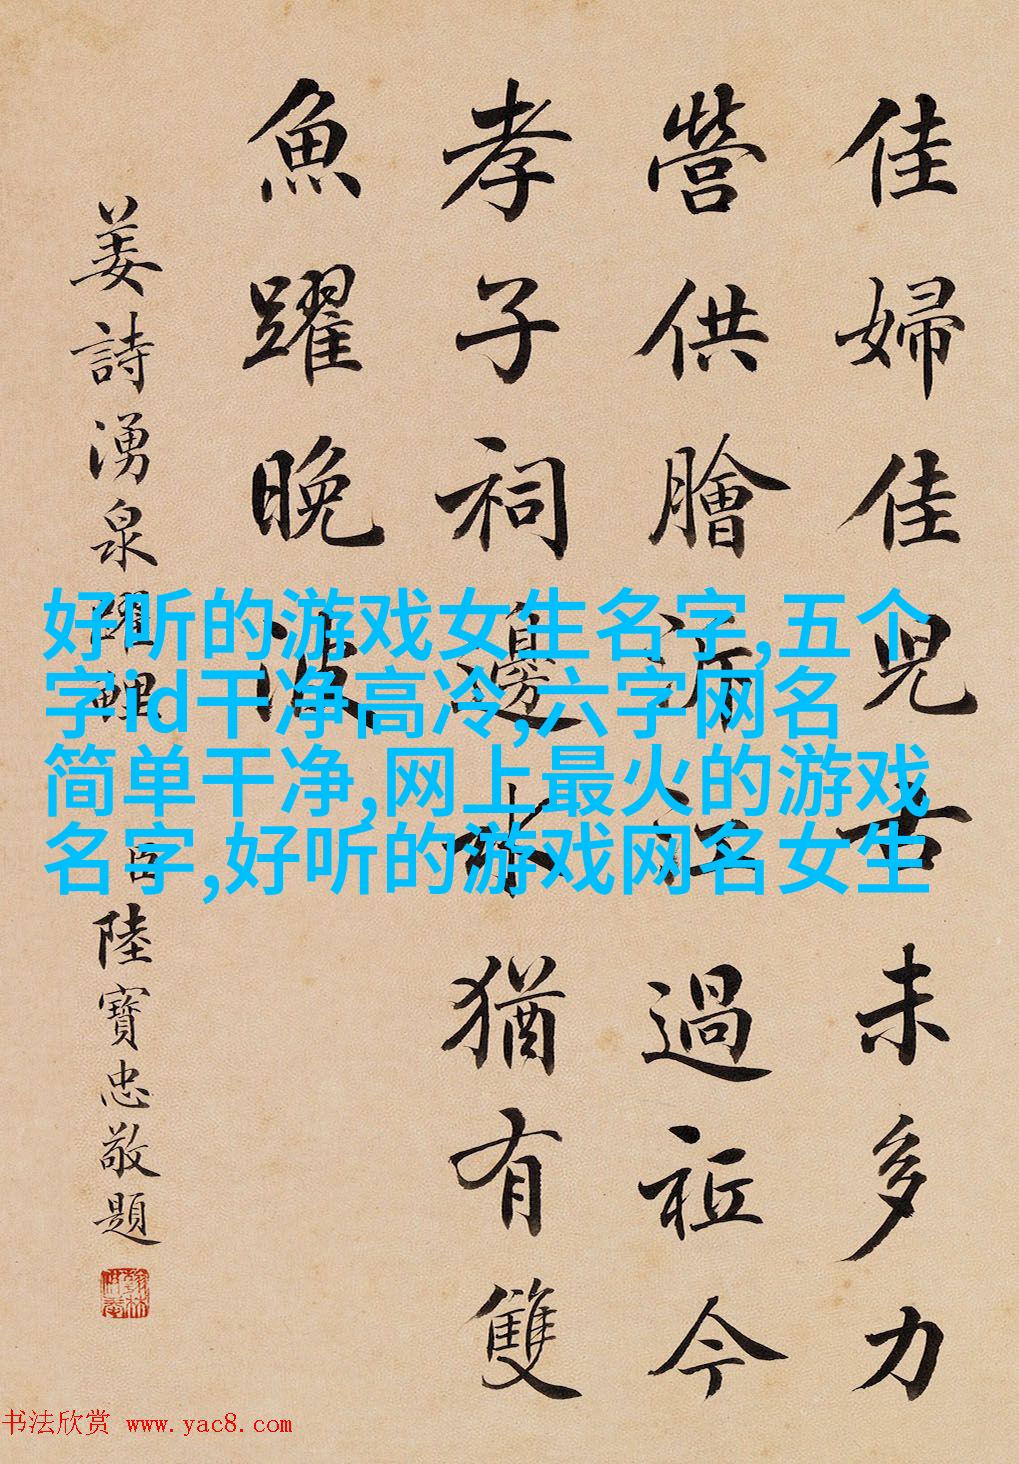 佳婦佳兒古未多力
營供膾泝江過祗今
孝子祠邊水猶有雙
魚躍晚波
姜詩湧泉躍鯉
臣陸寶忠敬題
好听的游戏女生名字,五个
字id干净高冷,六字网名
简单干净,网上最火的游戏
名字,好听的游戏网名女生
书法欣赏 www.yac8.com